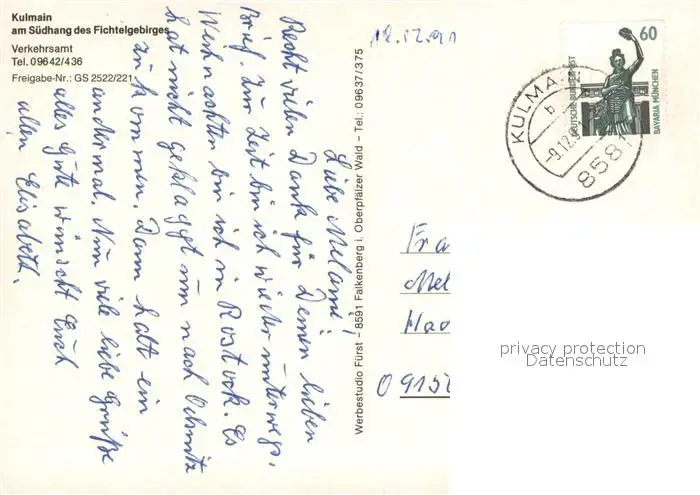 Kulmain
am Südhang des Fichtelgebirges
Verkehrsamt
Tel. 09642/436
Freigabe-Nr.: GS 2522/221
Liebe Meland!
Recht vielen Dank für Deinen lieben
Brief. Zur Zeit bin ich wieder unterwegs.
Weihnachten bin ich in Rostock. Es
hat nicht geklappt nun nach
zu kommen. Dann halt ein
andermal. Nun viele liebe Grüße
alles Gute wünscht Euch
allen Elisabeth.
Werbestudio Fürst – 8591 Falkenberg i. Oberpfälzer Wald – Tel.: 09637/375
60
DEUTSCHE BUNDESPOST
BAVARIA MÜNCHEN
KULMA
b
8581
Fra
Mel
Hao
O 915
privacy protection
Datenschutz